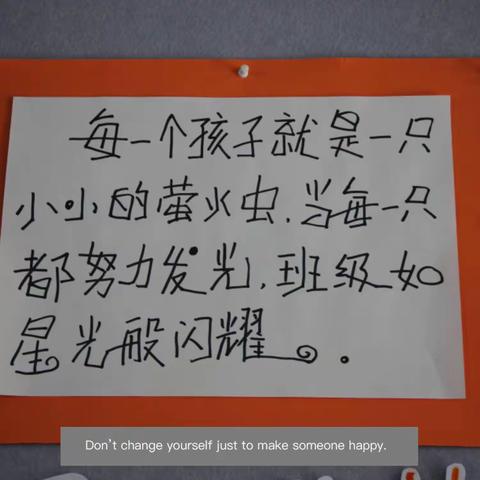 每一个孩子就是一只
小小的萤火虫,当每一只
都努力发光,班级如
星光般闪耀。
Don't change yourself just to make someone happy.